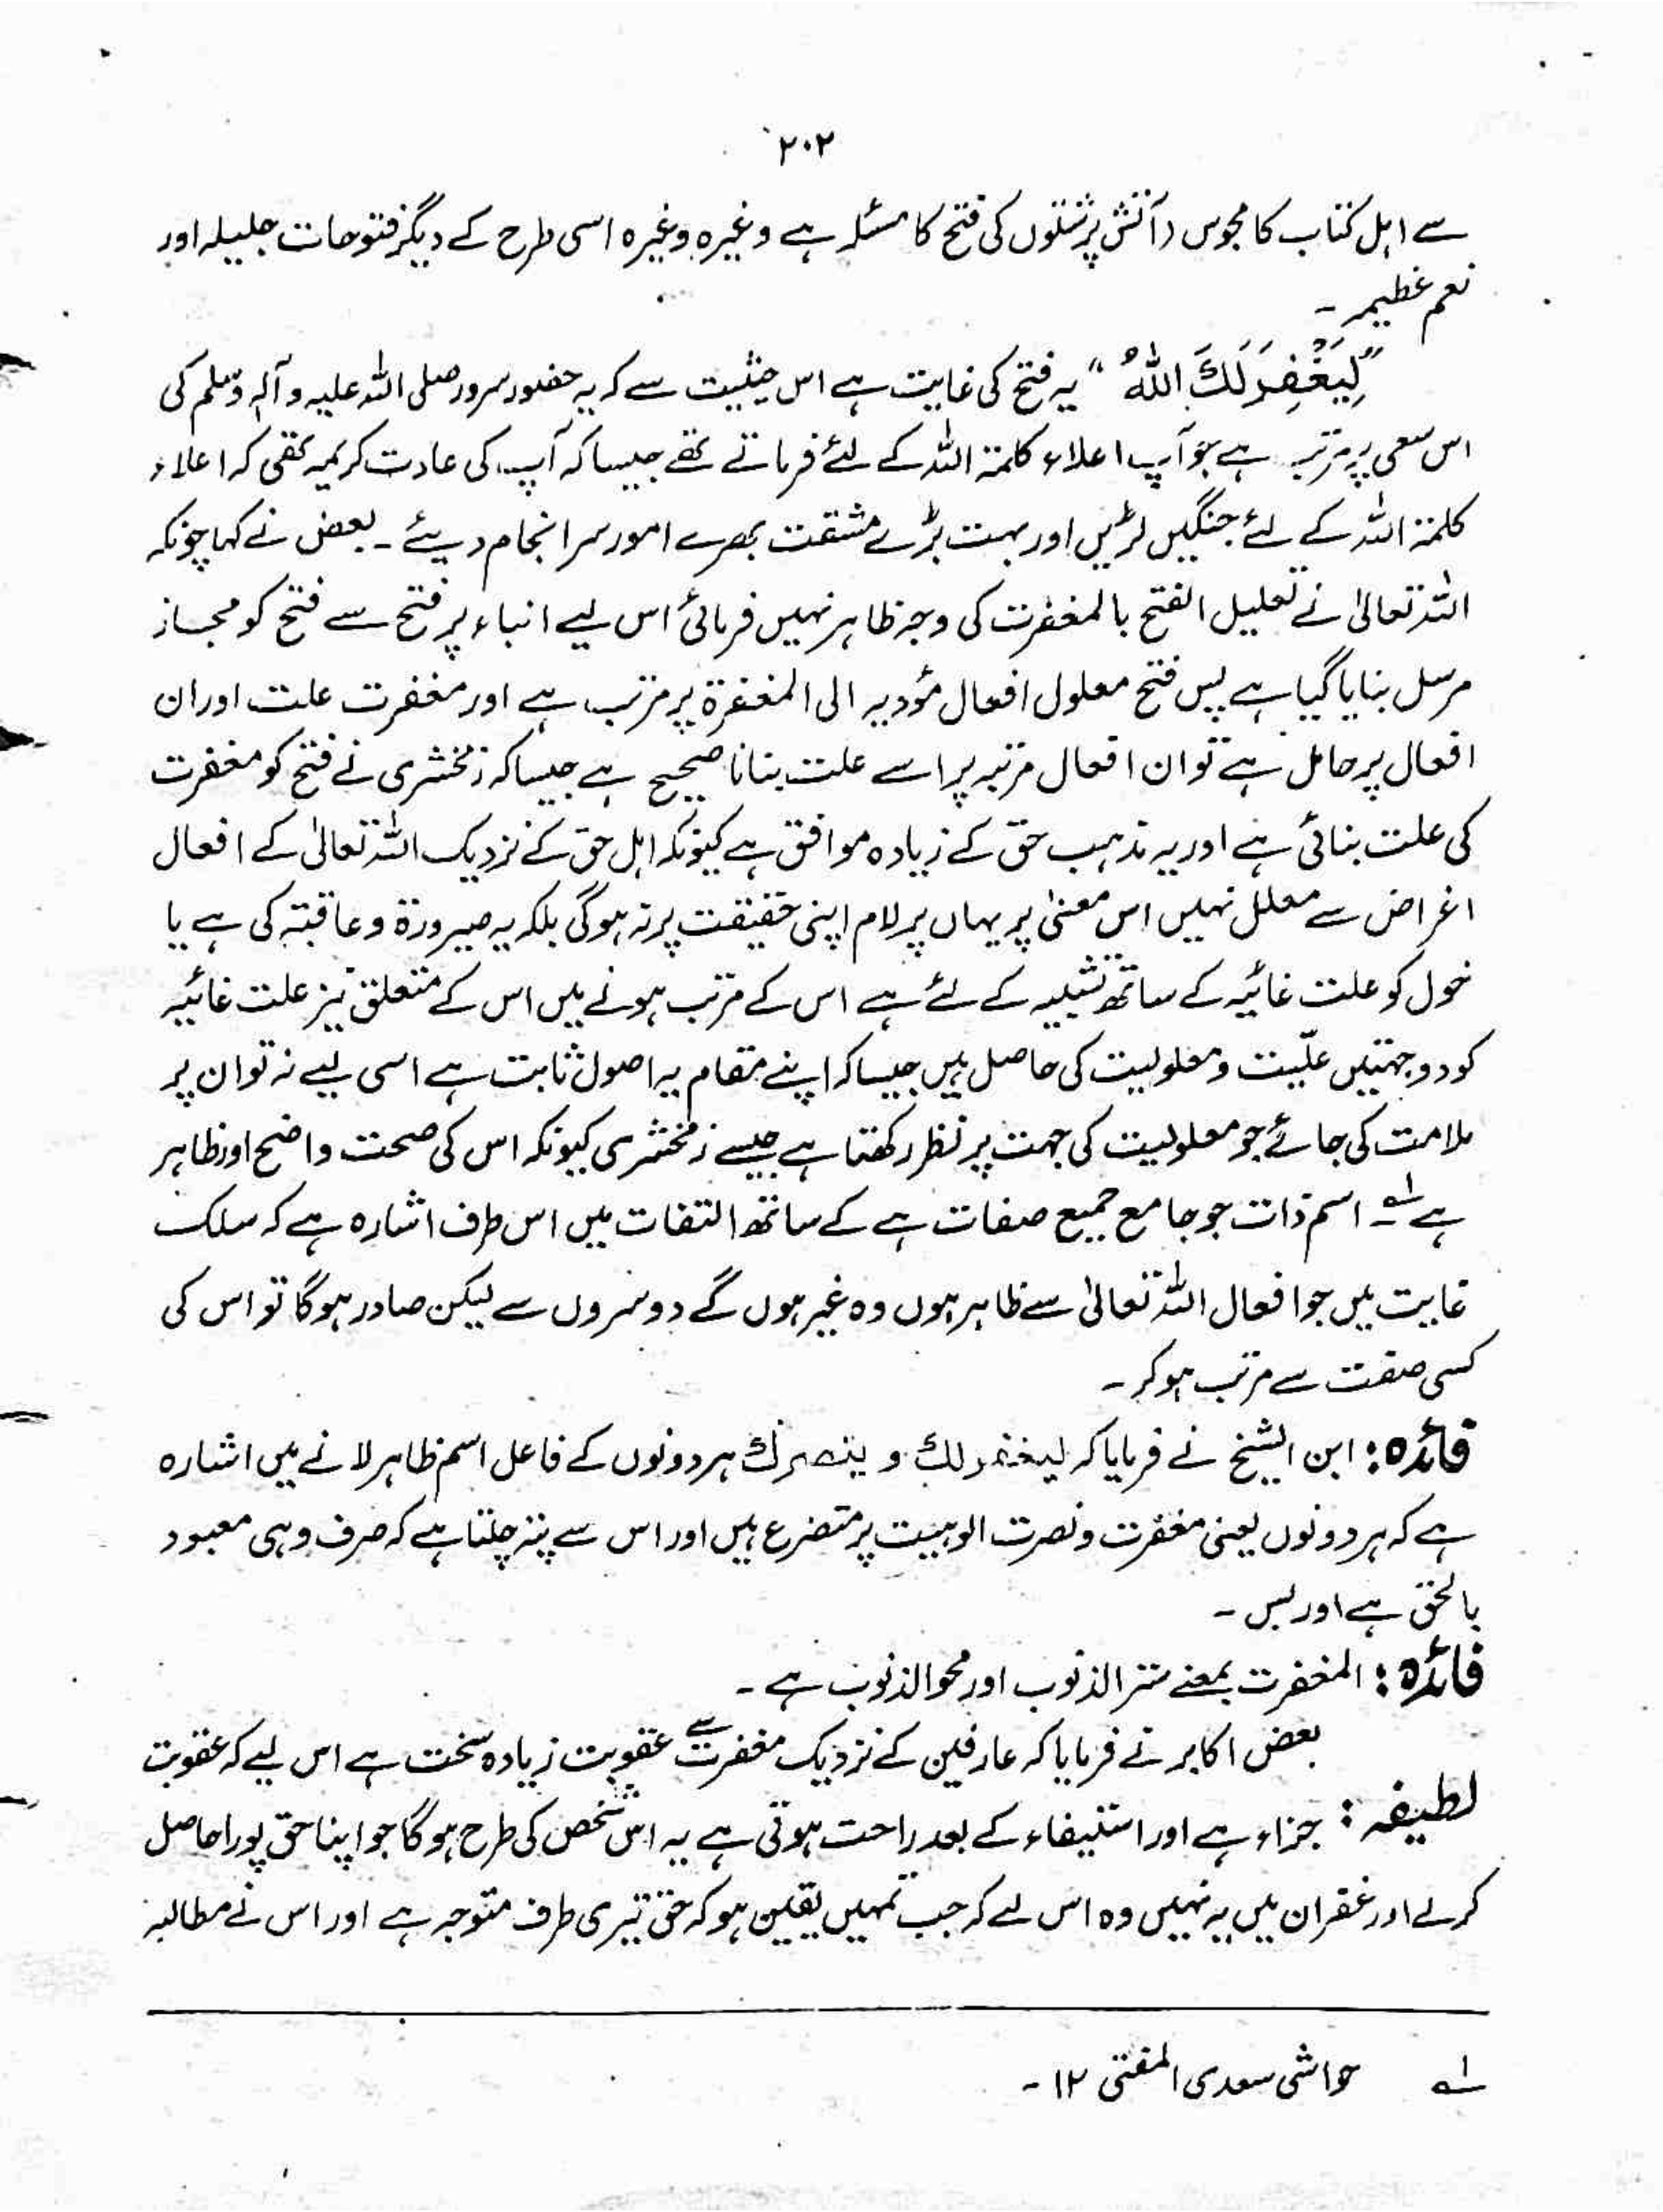 ۲۰۲
سے اہل کتاب کا مجوس (آتش پرستوں کی فتح کا مسئلہ ہے وغیرہ وغیرہ اسی طرح کے دیگر فتوحات جلیلہ اور
نعم عظیمہ ۔
"لِیَغْفِرَ لَکَ اللّٰہُ" یہ فتح کی غایت ہے اس حیثیت سے کہ یہ حضور سرور صلی اللہ علیہ وآلہٖ وسلم کی
اس سعی پر مرتب ہے جو آپ اعلاء کلمۃ اللہ کے لئے فرماتے تھے جیسا کہ آپ کی عادت کریمہ تھی کہ اعلاء
کلمۃ اللہ کے لئے جنگیں لڑیں اور بہت بڑے مشقت بھرے امور سرانجام دیئے ۔ بعض نے کہا چونکہ
اللہ تعالیٰ نے تعلیل الفتح بالمغفرت کی وجہ ظاہر نہیں فرمائی اس لیے انباء پر فتح سے فتح کو مجاز
مرسل بنایا گیا ہے پس فتح معلول افعال مؤدیہ الی المغفرۃ پر مرتب ہے اور مغفرت علت اور ان
افعال پر حامل ہے تو ان افعال مرتبہ پر اسے علت بنانا صحیح ہے جیسا کہ زمخشری نے فتح کو مغفرت
کی علت بنائی ہے اور یہ مذہب حق کے زیادہ موافق ہے کیونکہ اہل حق کے نزدیک اللہ تعالیٰ کے افعال
اغراض سے معلل نہیں اس معنیٰ پر یہاں پر لام اپنی حقیقت پر نہ ہوگی بلکہ یہ صیرورۃ و عاقبتہ کی ہے یا
نحول کو علت غائیہ کے ساتھ تشبیہ کے لئے ہے اس کے مرتب ہونے میں اس کے متعلق نیز علت غائیہ
کو دو جہتیں علّیت و معلولیت کی حاصل ہیں جیسا کہ اپنے مقام پہ اصول ثابت ہے اسی لیے نہ تو ان پر
ملامت کی جائے جو معلولیت کی جہت پر نظر رکھتا ہے جیسے زمخشری کیونکہ اس کی صحت واضح اور ظاہر
ہے لہ ۔ اسم ذات جو جامع جمیع صفات ہے کے ساتھ التفات میں اس طرف اشارہ ہے کہ سلک
غایت میں جو افعال اللہ تعالیٰ سے ظاہر ہوں وہ غیر ہوں گے دوسروں سے لیکن صادر ہوگا تو اس کی
کسی صفت سے مرتب ہو کر ۔
فائدہ : ابن الشیخ نے فرمایا کہ لیغفر لک و ینصرک ہر دونوں کے فاعل اسم ظاہر لانے میں اشارہ
ہے کہ ہر دونوں یعنی مغفرت و نصرت الوہیت پر متضرع ہیں اور اس سے پتہ چلتا ہے کہ صرف وہی معبود
بالحق ہے اور بس ۔
فائدہ : المغفرت بمعنے ستر الذنوب اور محو الذنوب ہے ۔
بعض اکابر نے فرمایا کہ عارفین کے نزدیک مغفرت سے عقوبت زیادہ سخت ہے اس لیے کہ عقوبت
لطیفہ : جزاء ہے اور استیفاء کے بعد راحت ہوتی ہے یہ اس شخص کی طرح ہوگا جو اپنا حق پورا حاصل
کرلے اور غفران میں یہ نہیں وہ اس لے کہ جب تمہیں یقین ہو کہ حق تیری طرف متوجہ ہے اور اس نے مطالبہ
لہ حواشی سعدی المفتی ۱۲ ۔